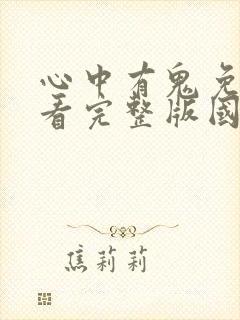 心中有鬼免
看完整版國
焦莉莉